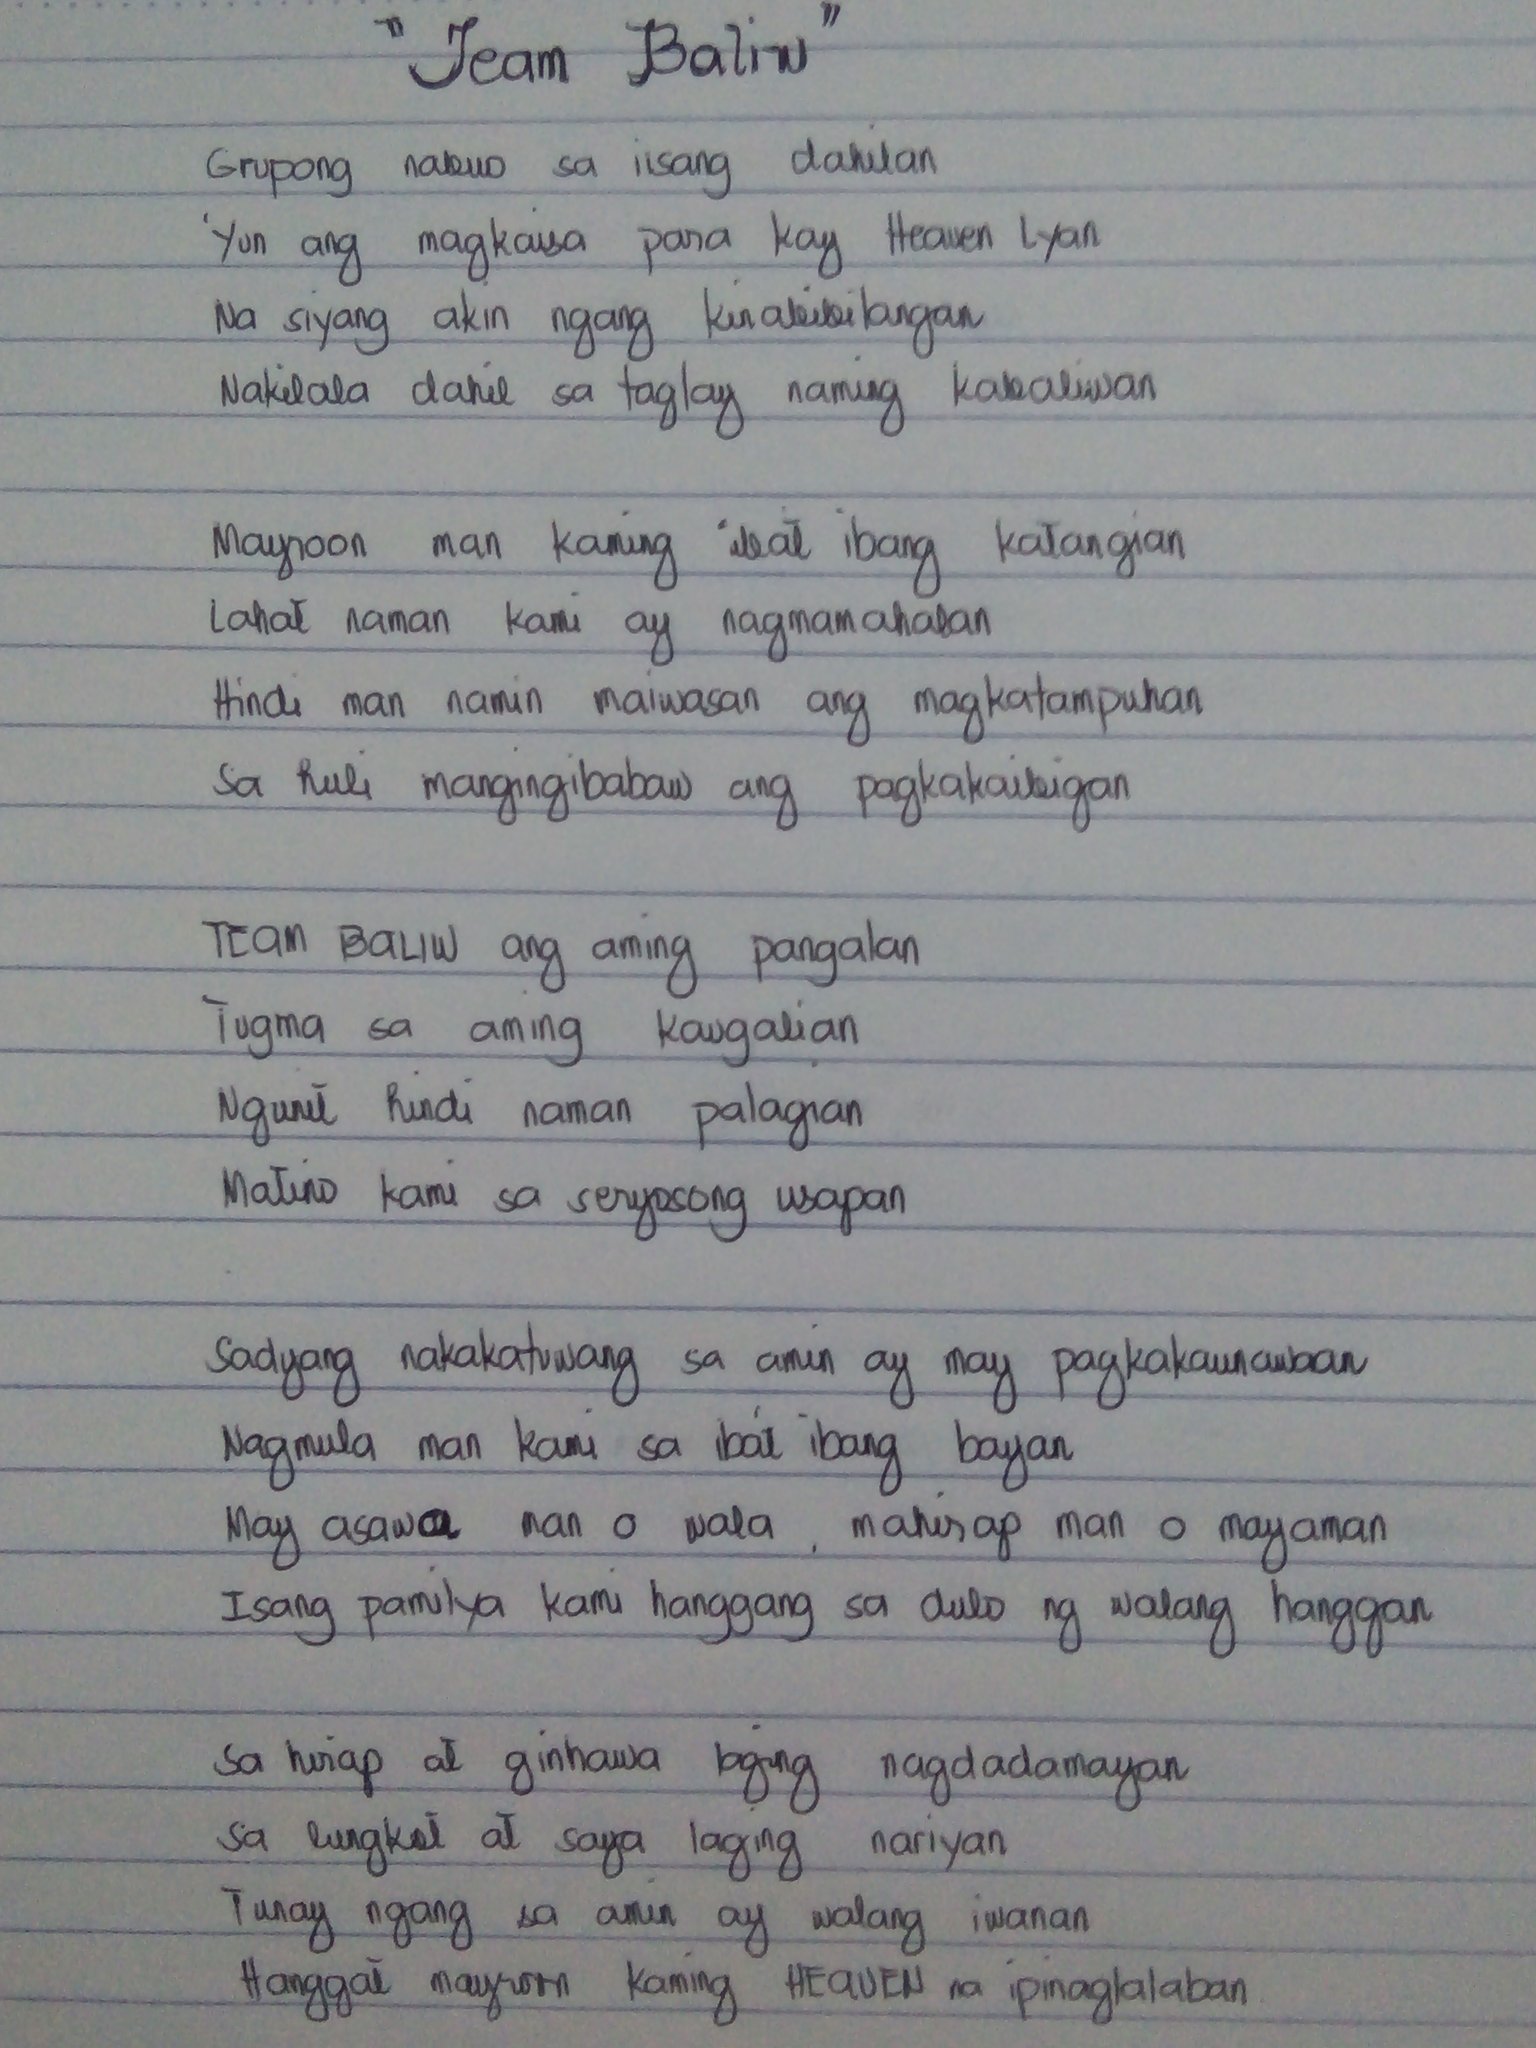 "Team Baliw"
Grupong nabuo sa iisang dahilan
'Yun ang magkaisa para kay Heaven Lyan
Na siyang akin ngang kinabibilangan
Nakilala dahil sa taglay naming kabaliwan
Mayroon man kaming 'ibat ibang katangian
Lahat naman kami ay nagmamahalan
Hindi man namin maiwasan ang magkatampuhan
Sa huli mangingibabaw ang pagkakaibigan
TEAM BALIW ang aming pangalan
Tugma sa aming kaugalian
Ngunit hindi naman palagian
Matino kami sa seryosong usapan
Sadyang nakakatuwang sa amin ay may pagkakaunawaan
Nagmula man kami sa iba't ibang bayan
May asawa man o wala, mahirap man o mayaman
Isang pamilya kami hanggang sa dulo ng walang hanggan
Sa hirap at ginhawa laging nagdadamayan
Sa lungkot at saya laging nariyan
Tunay ngang sa amin ay walang iwanan
Hanggat mayroon kaming HEAVEN na ipinaglalaban